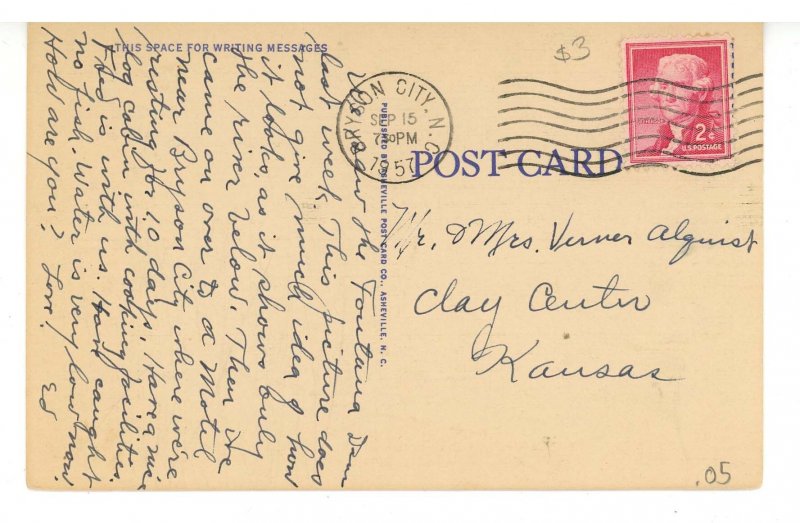 THIS SPACE FOR WRITING MESSAGES
We saw the Fontana Dam
last week. This picture does
not give much idea of how
it looks as it shows only
the river below. Then we
came on over to a Motel
near Bryson City where we're
resting for 10 days. Have a nice
log cabin with cooking facilities.
is with us. Have caught
no fish. Water is very low now.
How are you? Love. Ed
PUBLISHED BY ASHEVILLE POST CARD CO., ASHEVILLE, N. C.
POST CARD
BRYSON CITY, N.C.
SEP 15
PM
1957
2¢
U.S. POSTAGE
$3
Mr. & Mrs. Verner Alquist
Clay Center
Kansas
.05